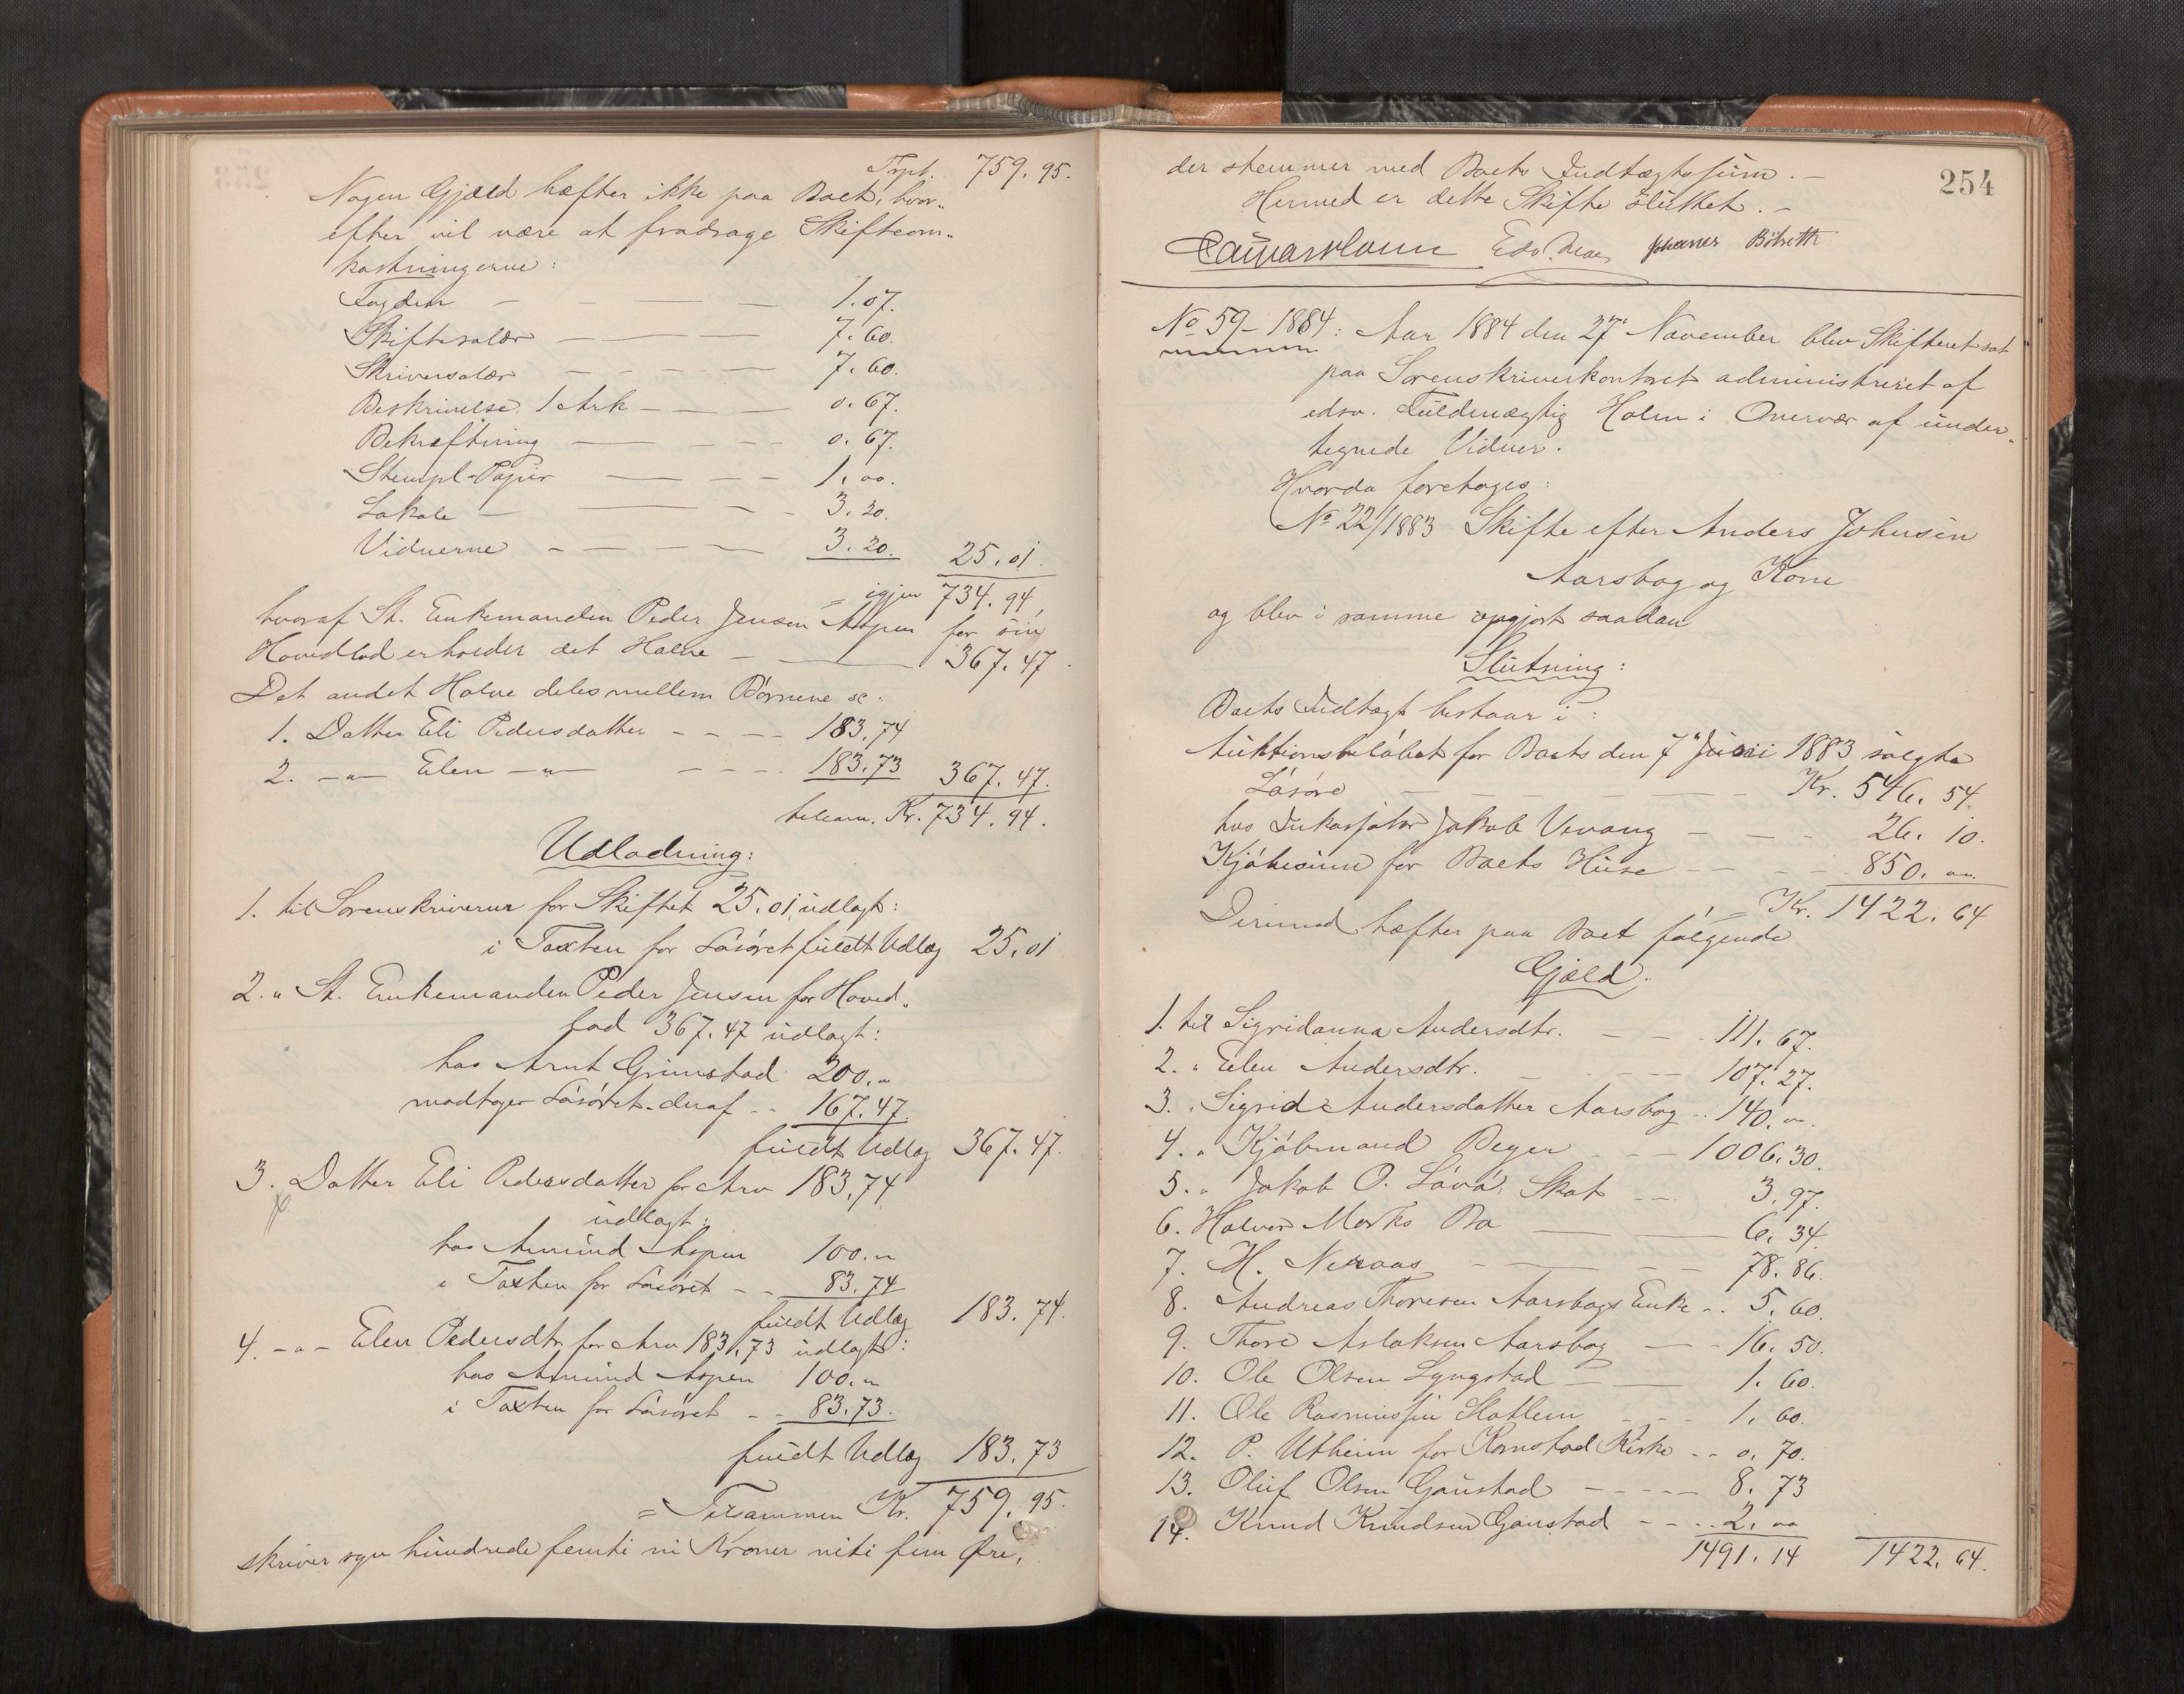 Trpt. 759.95.
Nogen Gjæld hæfter ikke paa Boet, hvor-
efter vil være at fradrage Skifteom-
kostningerne:
Fogden — 1.07.
Skiftesalær — 7.60.
Skriversalær — 7.60.
Beskrivelse 1 Ark — 0.67.
Bekræftning — 0.67.
Stempl-Papir — 1.00.
Lokale — 3.20.
Vidnerne — 3.20. 25.01.
= igjen 734.94,
hvoraf St. Enkemanden Peder Jensen Aspen for sin
Hovedlod erholder det Halve — 367.47.
Det andet Halve deles mellem Børnene sc.
1. Datter Eli Pedersdatter — 183.74
2. —"— Elen —"— 183.73 367.47.
tilsam. Kr. 734.94.
Udlodning:
1. til Sorenskriveren for Skiftet 25.01 udlagt:
i Taxten for Løsøret fuldt Udlæg 25.01
2. " St. Enkemanden Peder Jensen for Hoved-
lod 367.47 udlagt:
hos Arnt Grimstad 200."
modtager Løsøret deraf -- 167.47.
fuldt Udlæg 367.47.
3. Datter Eli Pedersdatter for Arv 183.74
udlagt:
hos Amund Aspen 100."
i Taxten for Løsøret -- 83.74
fuldt Udlæg 183.74.
4. —"— Elen Pedersdtr. for Arv 183.73 udlagt:
hos Amund Aspen 100."
i Taxten for Løsøret -- 83.73.
fuldt Udlæg 183.73
= Tilsammen Kr. 759.95.
skriver syv hundrede femti ni Kroner niti fem Øre,
254
der stemmer med Boets Indtægtssum.—
Hermed er dette Skifte sluttet.—
Johannes
No 59-1884: Aar 1884 den 27' November blev Skifteret sat
paa Sorenskriverkontoret administreret af
edsv. Fuldmægtig Holm i Overvær af under-
tegnede Vidner.
Hvorda foretoges:
No 22/1883 Skifte efter Anders Johnsen
Aarsbog og Kone
og blev i samme opgjort saadan
Slutning:
Boets Indtægt bestaar i:
Auktionsbeløbet for Boets den 7' Juni 1883 solgte
Løsøre — Kr. 546.54.
hos Inkassator Jakob Vevang — 26.10.
Kjøbesum for Boets Huse — 850.00
Kr. 1422.64
Derimod hæfter paa Boet følgende
Gjæld.
1. til Sigridanna Andersdtr. — 111.67.
2. " Elen Andersdtr. — 107.27.
3. " Sigrid Andersdatter Aarsbog -- 140.00.
4. " Kjøbmand Beyer — 1006.30.
5. " Jakob O. Lövö, Skat — 3.97.
6. Halvor Morks Bo — 6.34.
7. H. Neraas — 78.86.
8. Andreas Thoresen Aarsbogs Enke -- 5.60.
9. Thore Aslaksen Aarsbog — 16.50.
10. Ole Olsen Lyngstad — 1.60.
11. Ole Rasmussen Hatlem — 1.60.
12. P. Utheim for Kornstad Kirke -- 0.70.
13. Oluf Olsen Gaustad — 8.73
14. Knud Knudsen Gaustad — 2.00
1491.14 1422.64.